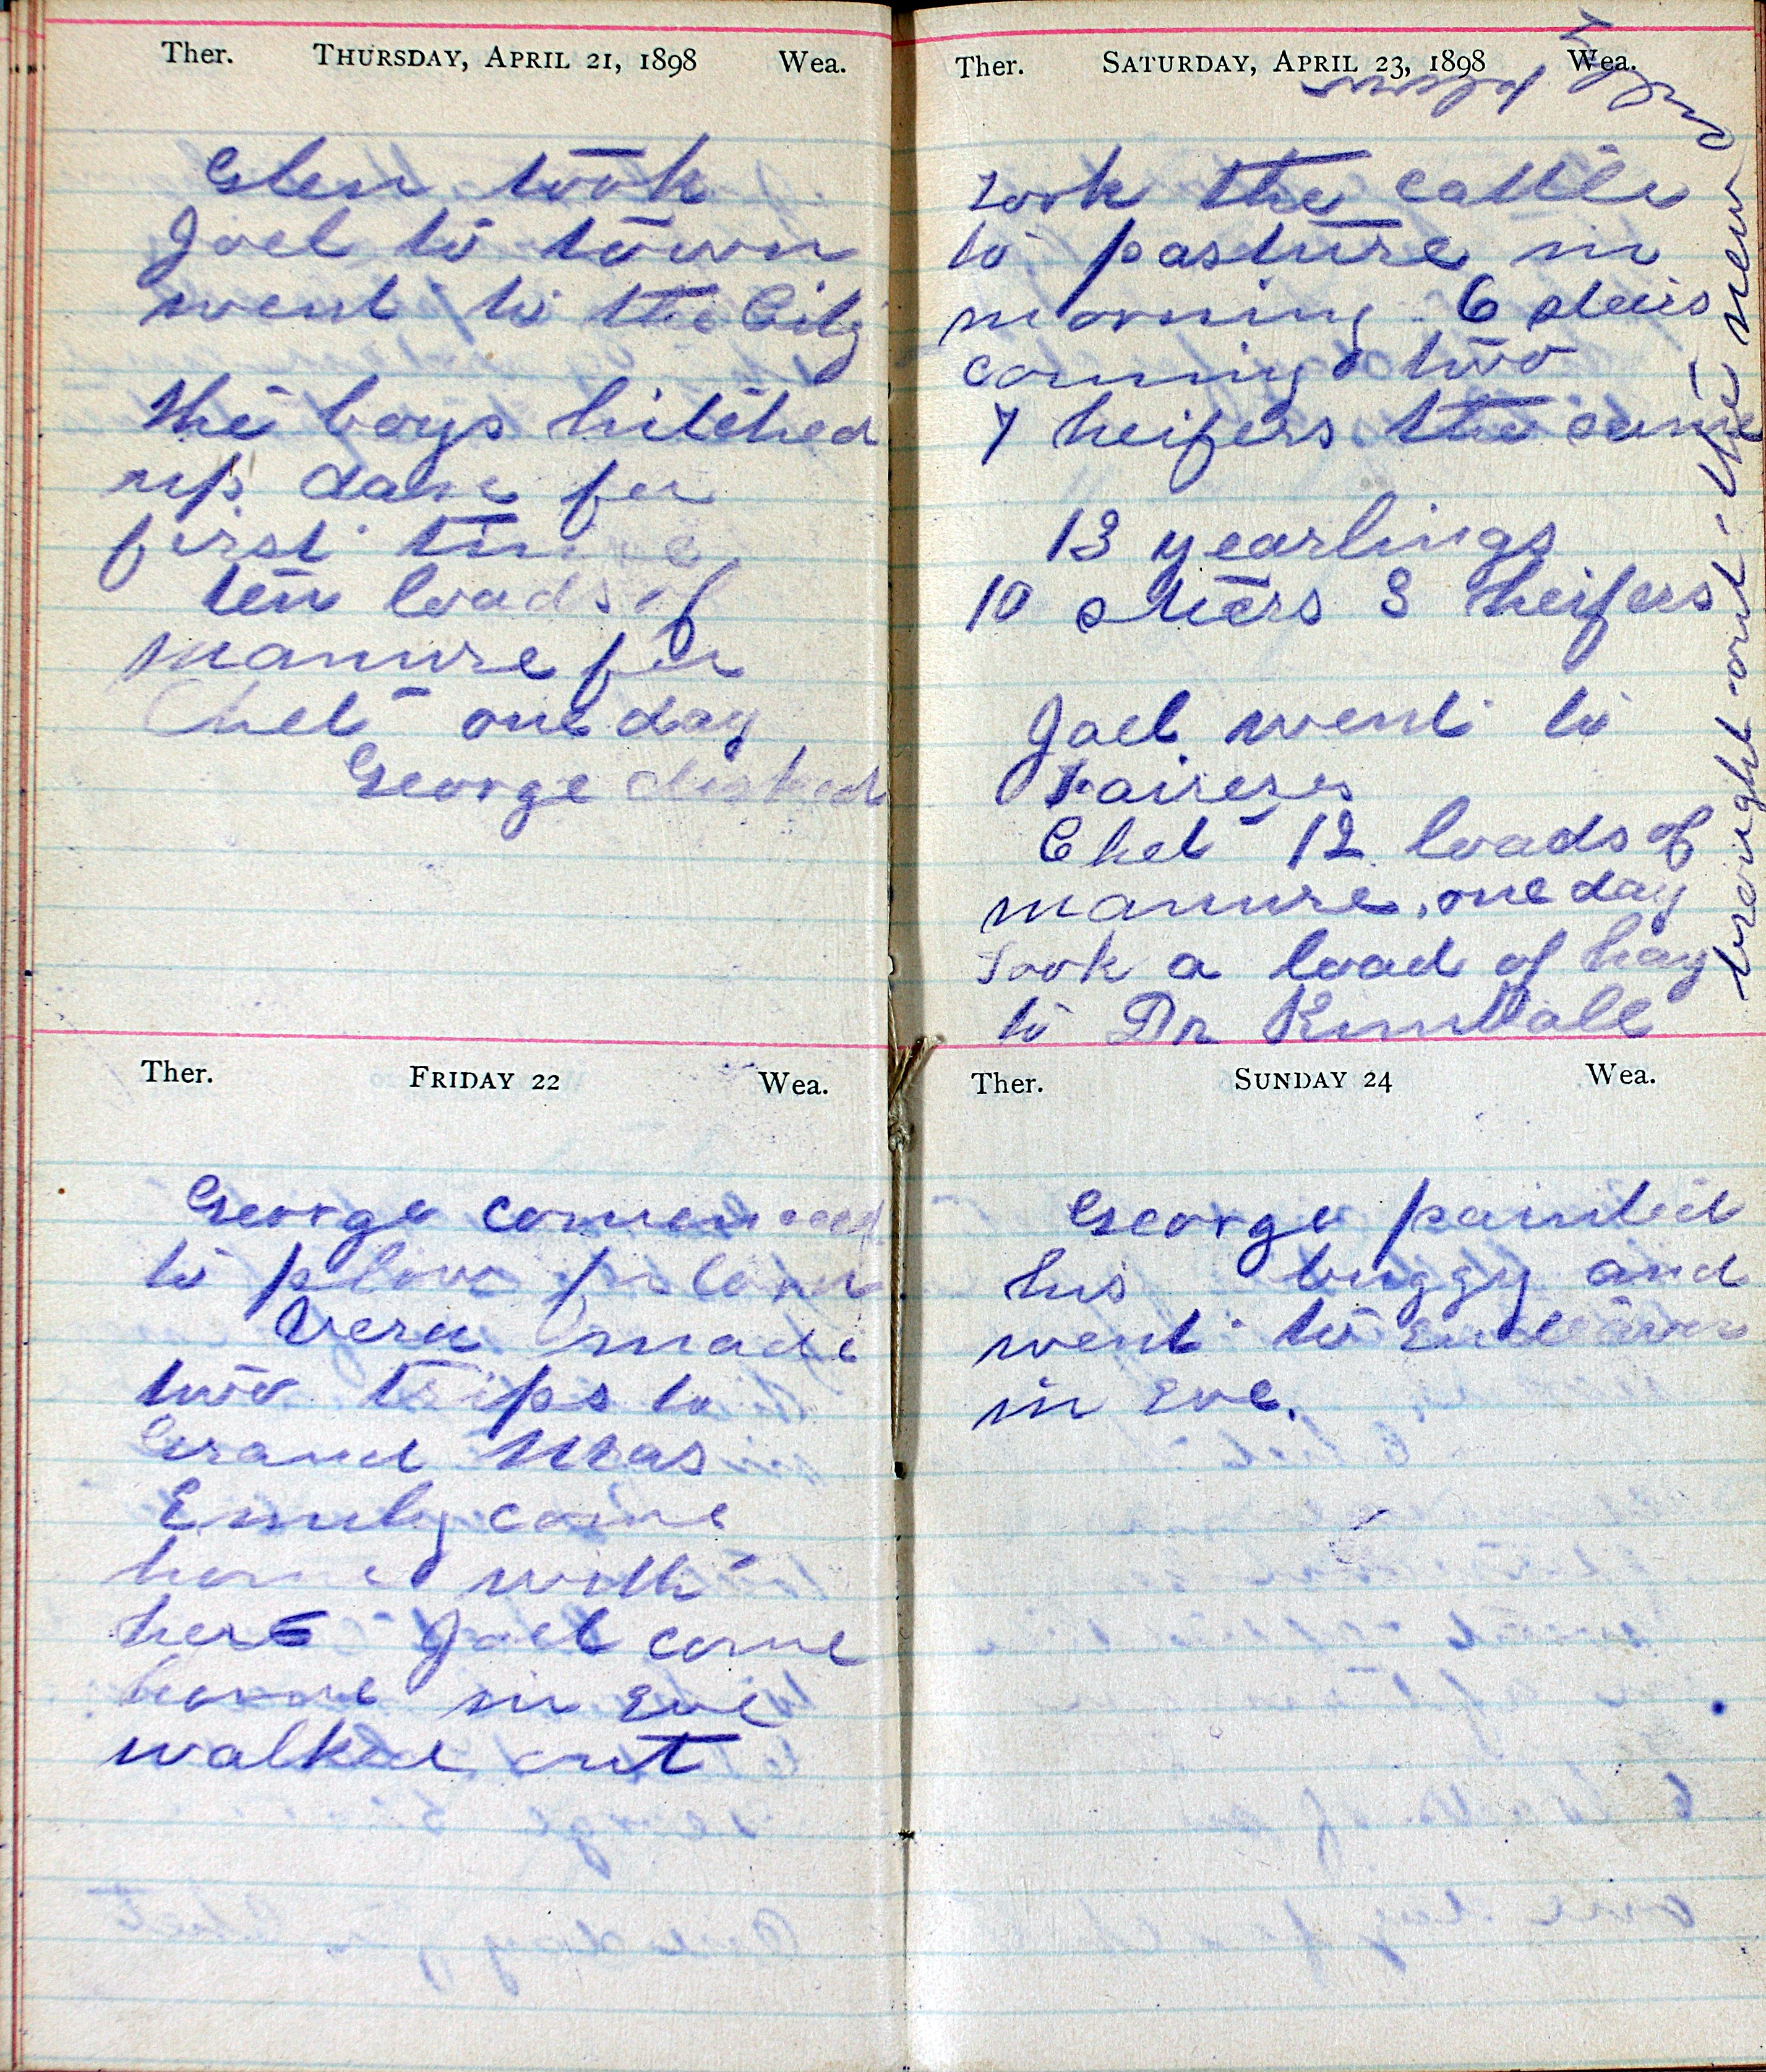 Ther. THURSDAY, APRIL 21, 1898 Wea.
Glen took
Joel to town
went to the City
the boys hitched
up dan for
first time
ten loads of
manure for
Chet one day
George disked
Ther. FRIDAY 22 Wea.
George commenced
to plow
Vera made
two trips to
Grand Mas
Emily come
home with
her Joel come
home in Eve
walked out
Ther. SATURDAY, APRIL 23, 1898 Wea.
took the cattle
to pasture in
morning 6 steers
coming two
7 heifers the same
13 yearlings
10 steers 3 heifers
Joel went to
Chet 12 loads of
manure, one day
Took a load of hay
to Dr Kimball
brought out the new
Ther. SUNDAY 24 Wea.
George painted
his buggy and
went to
in Eve.